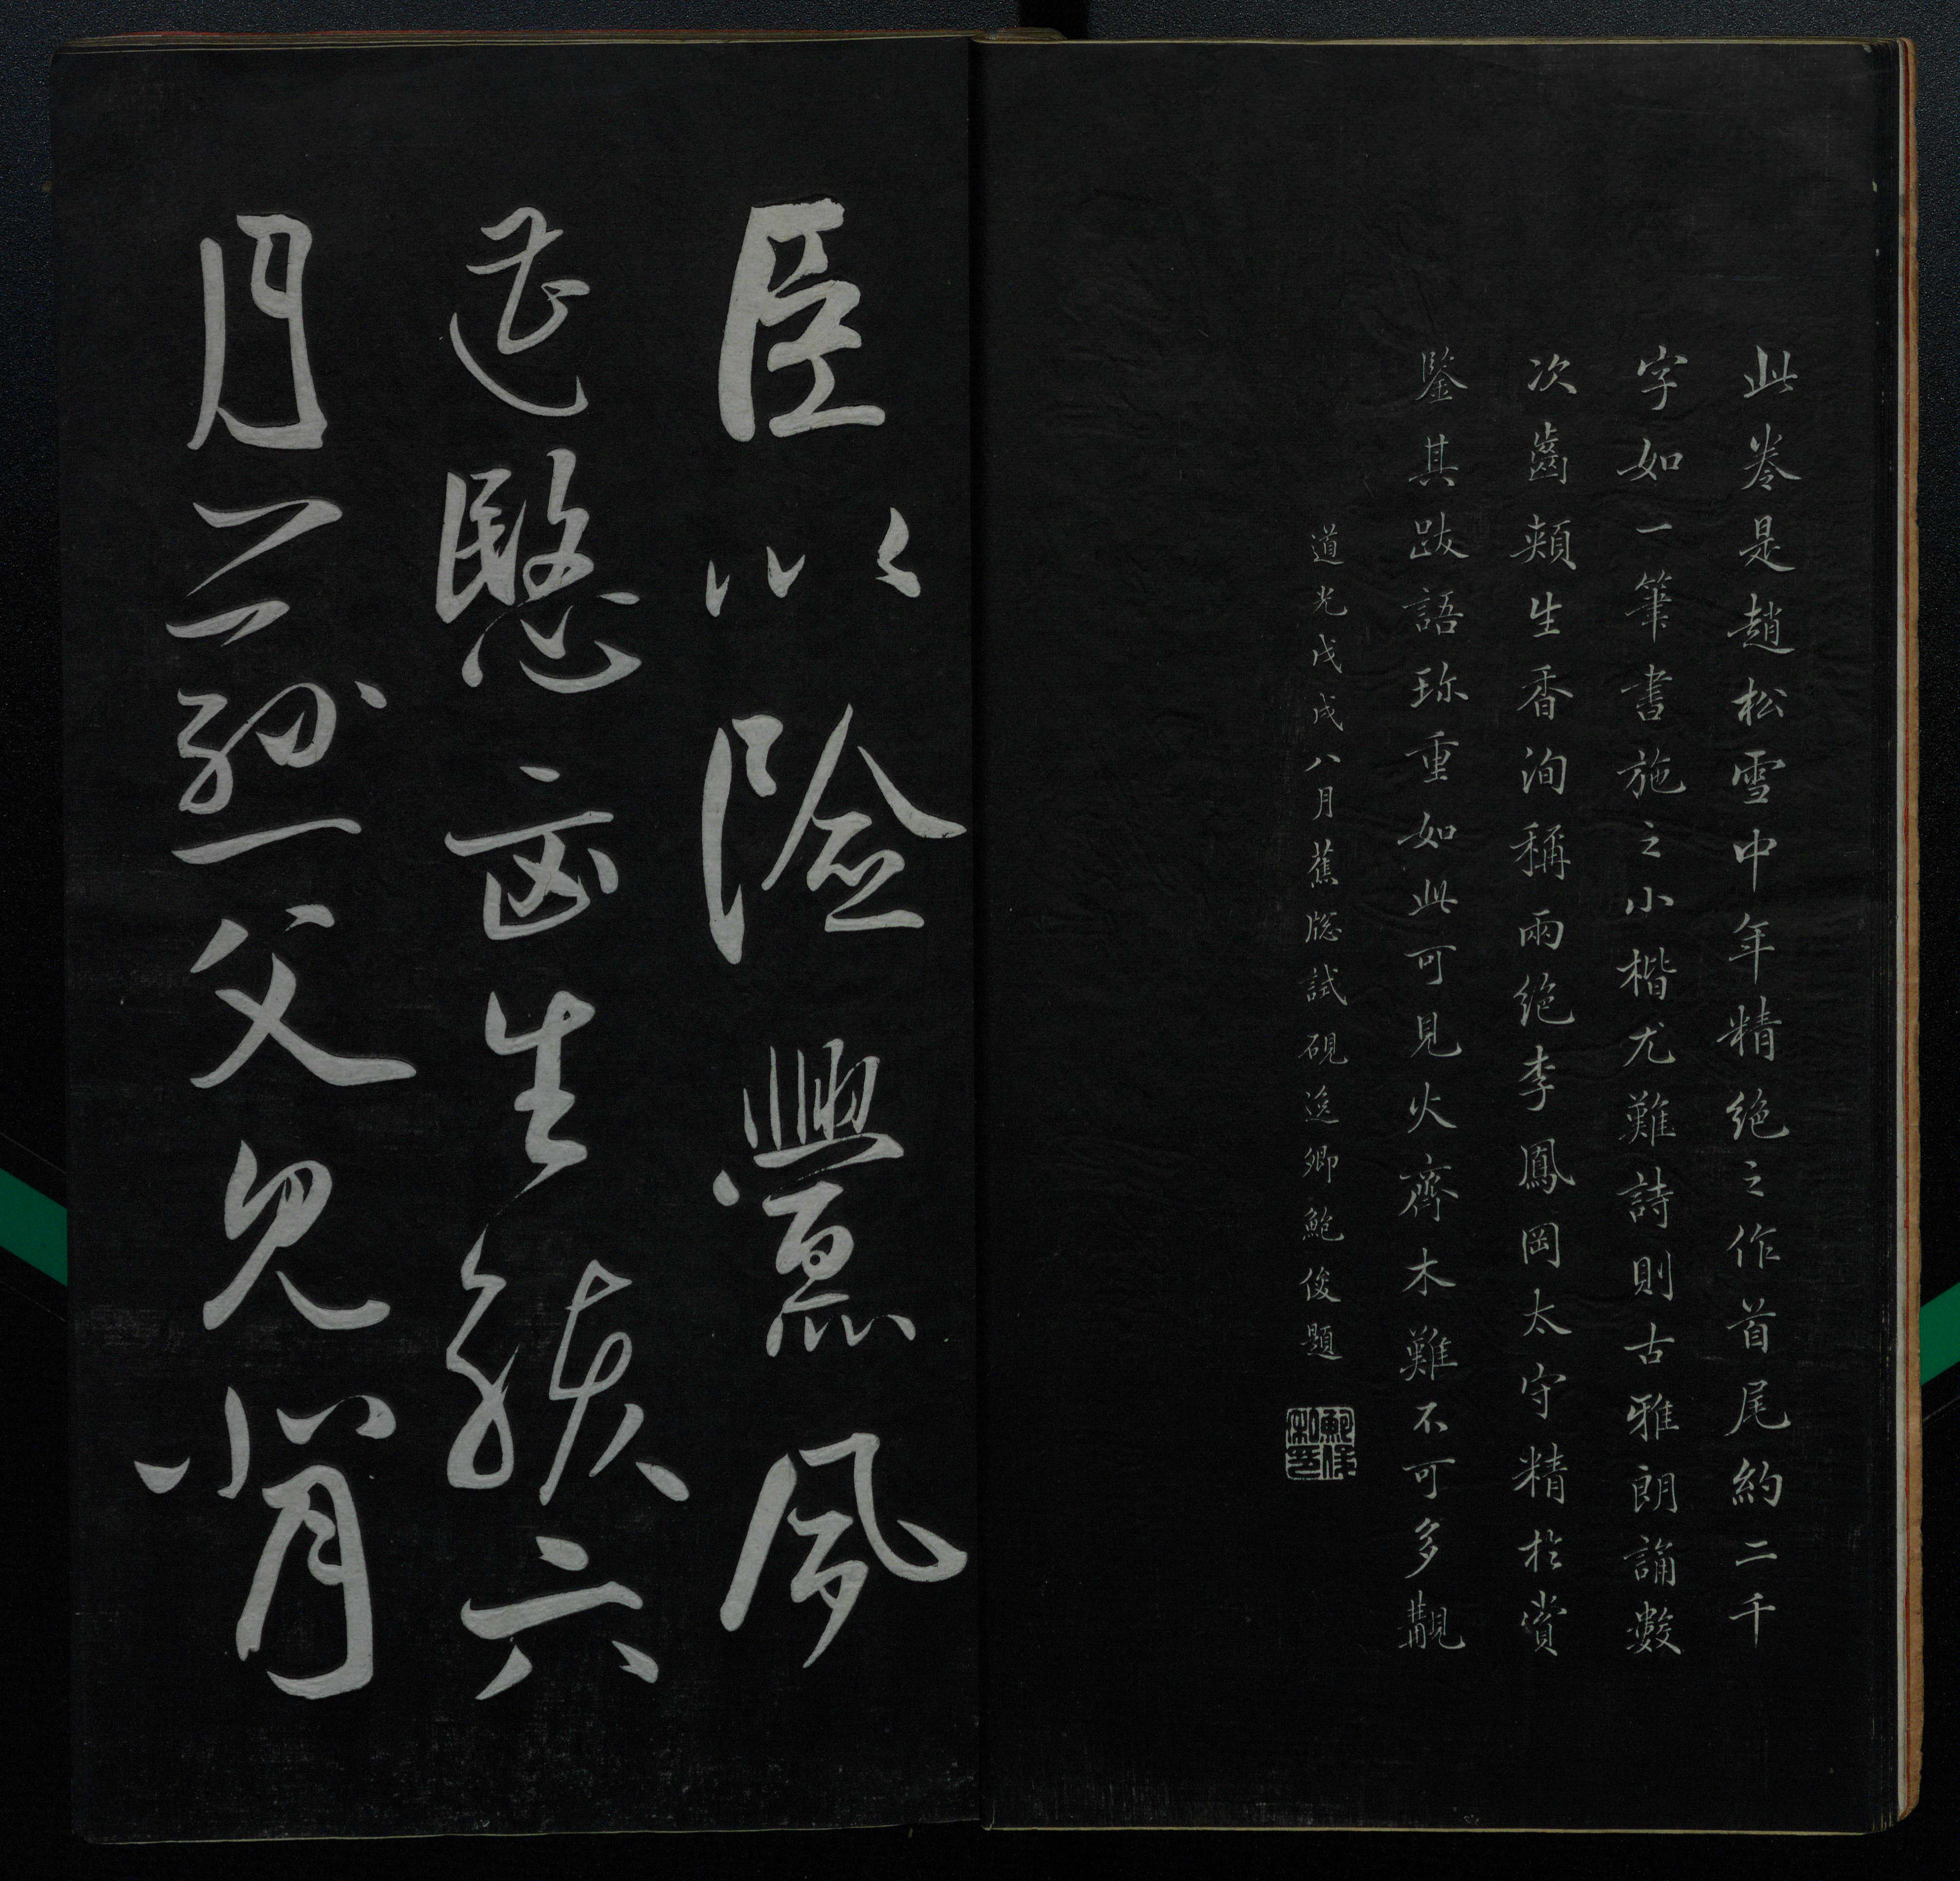 此卷是趙松雪中年精絕之作首尾約二千
字如一筆書施之小楷尤難詩則古雅朗誦數
次齒頰生香洵稱兩絕李鳳岡太守精於賞
鑒其跋語珍重如此可見火齊木難不可多覯
道光戊戌八月蕉牕試硯逸卿鮑俊題
臣以險釁夙
遭愍凶生孩六
月慈父見背